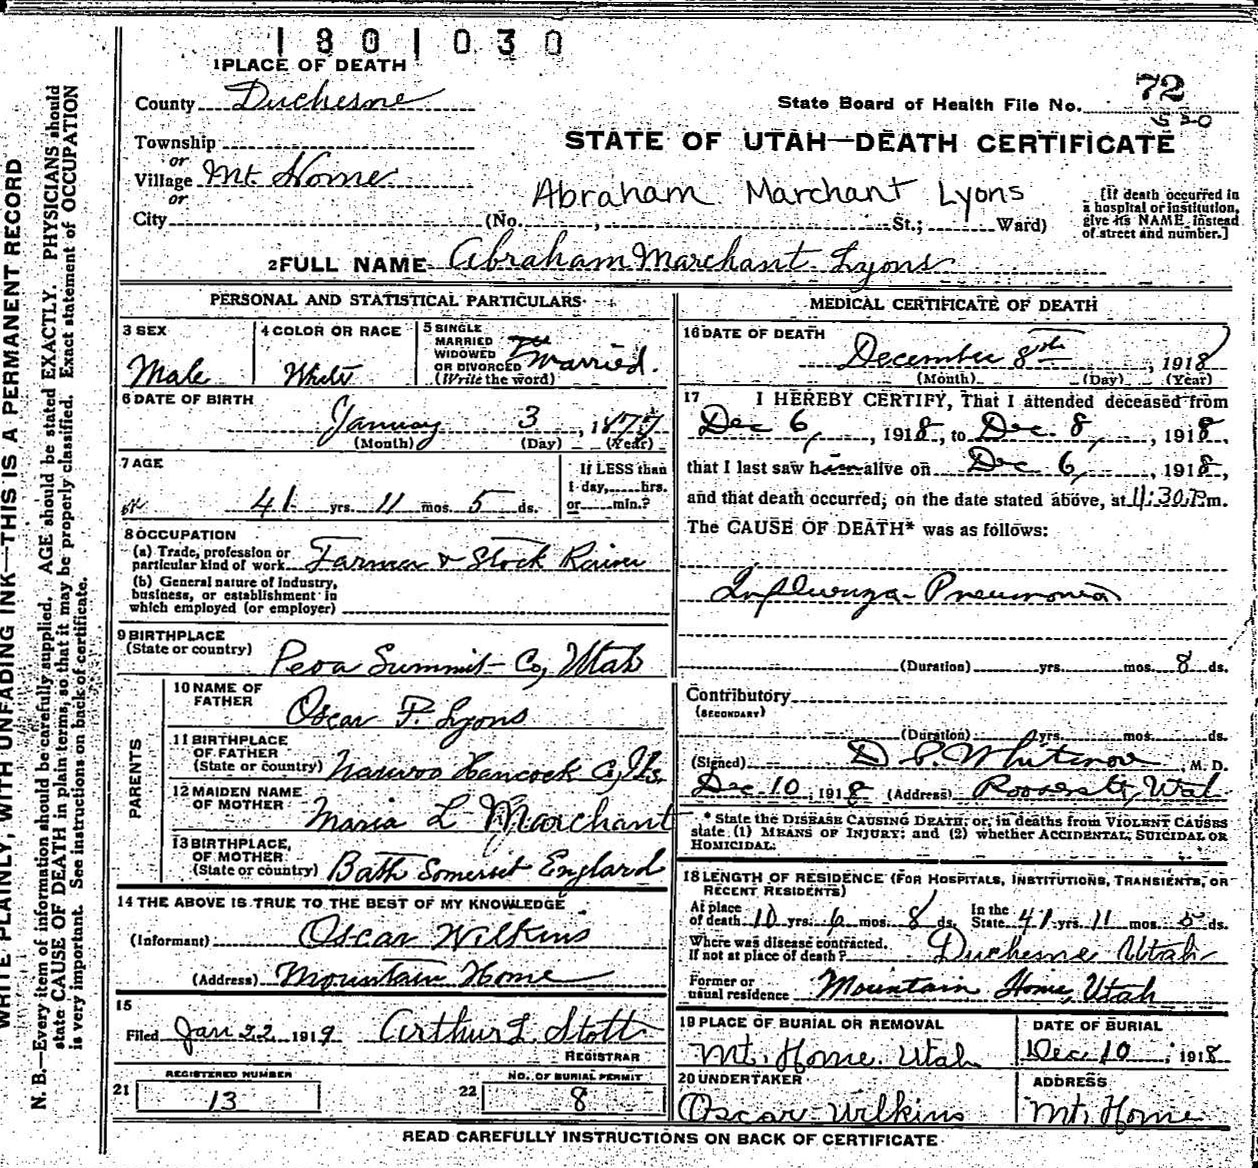 1801030
1 PLACE OF DEATH
County Duchesne
72
State Board of Health File No.
Township
STATE OF UTAH—DEATH CERTIFICATE
or
Village Mt. Home
or
Abraham Marchant Lyons
City (No. , St.; Ward)
[If death occurred in
a hospital or institution,
give its NAME instead
of street and number.]
2 FULL NAME Abraham Marchant Lyons
PERSONAL AND STATISTICAL PARTICULARS
3 SEX
Male
4 COLOR OR RACE
White
5 SINGLE
MARRIED
WIDOWED
OR DIVORCED
(Write the word)
Married.
6 DATE OF BIRTH
January 3, 1877
(Month) (Day) (Year)
7 AGE
41 yrs. 11 mos. 5 ds.
If LESS than
1 day, hrs.
or min.?
8 OCCUPATION
(a) Trade, profession or
particular kind of work Farmer & Stock Raiser
(b) General nature of Industry,
business, or establishment in
which employed (or employer)
9 BIRTHPLACE
(State or country)
Peoa Summit Co, Utah
PARENTS
10 NAME OF
FATHER
Oscar P. Lyons
11 BIRTHPLACE
OF FATHER
(State or country) Hancock Co, Ills.
12 MAIDEN NAME
OF MOTHER
Maria L Marchant
13 BIRTHPLACE,
OF MOTHER
(State or country) Bath Somerset England
14 THE ABOVE IS TRUE TO THE BEST OF MY KNOWLEDGE
(Informant) Oscar Wilkins
(Address) Mountain Home
15
Filed Jan 22 1919 Arthur L. Stott
REGISTRAR
REGISTERED NUMBER
21 13
NO. OF BURIAL PERMIT
22 8
MEDICAL CERTIFICATE OF DEATH
16 DATE OF DEATH
December 8th, 1918
(Month) (Day) (Year)
17 I HEREBY CERTIFY, That I attended deceased from
Dec 6, 1918, to Dec. 8, 1918,
that I last saw him alive on Dec 6, 1918,
and that death occurred, on the date stated above, at 11:30 P.m.
The CAUSE OF DEATH* was as follows:
Influenza-Pneumonia
(Duration) yrs. mos. 8 ds.
Contributory
(SECONDARY)
(Duration) yrs. mos. ds.
(Signed) M. D.
Dec 10, 1918 (Address)
* State the DISEASE CAUSING DEATH, or, in deaths from VIOLENT CAUSES
state (1) MEANS OF INJURY; and (2) whether ACCIDENTAL, SUICIDAL OR
HOMICIDAL.
18 LENGTH OF RESIDENCE (FOR HOSPITALS, INSTITUTIONS, TRANSIENTS, OR
RECENT RESIDENTS)
At place
of death 10 yrs. 6 mos. 8 ds.
In the
State 41 yrs. 11 mos. 5 ds.
Where was disease contracted.
If not at place of death? Duchesne Utah
Former or
usual residence Mountain Home, Utah
19 PLACE OF BURIAL OR REMOVAL
Mt. Home Utah
DATE OF BURIAL
Dec. 10, 1918
20 UNDERTAKER
Oscar Wilkins
ADDRESS
Mt. Home
READ CAREFULLY INSTRUCTIONS ON BACK OF CERTIFICATE
WRITE PLAINLY, WITH UNFADING INK—THIS IS A PERMANENT RECORD
N. B.—Every item of information should be carefully supplied. AGE should be stated EXACTLY. PHYSICIANS should
state CAUSE OF DEATH in plain terms, so that it may be properly classified. Exact statement of OCCUPATION
is very important. See instructions on back of certificate.